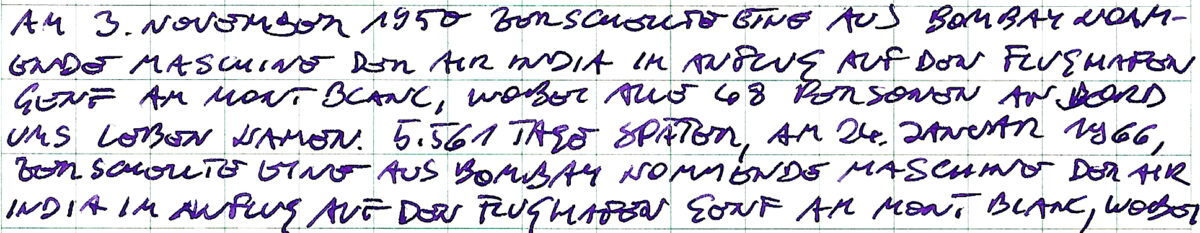 AM 3. NOVEMBER 1950 ZERSCHELLTE EINE AUS BOMBAY KOMM-
ENDE MASCHINE DER AIR INDIA IM ANFLUG AUF DEN FLUGHAFEN
GENF AM MONT BLANC, WOBEI ALLE 48 PERSONEN AN BORD
UMS LEBEN KAMEN. 5.561 TAGE SPÄTER, AM 24. JANUAR 1966,
ZERSCHELLTE EINE AUS BOMBAY KOMMENDE MASCHINE DER AIR
INDIA IM ANFLUG AUF DEN FLUGHAFEN GENF AM MONT BLANC, WOBEI